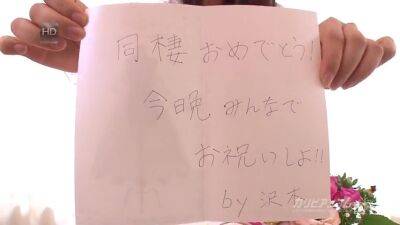 HD
同棲おめでとう!
今晩みんなで
お祝いしよ!!
by 沢本
カリビアンコム